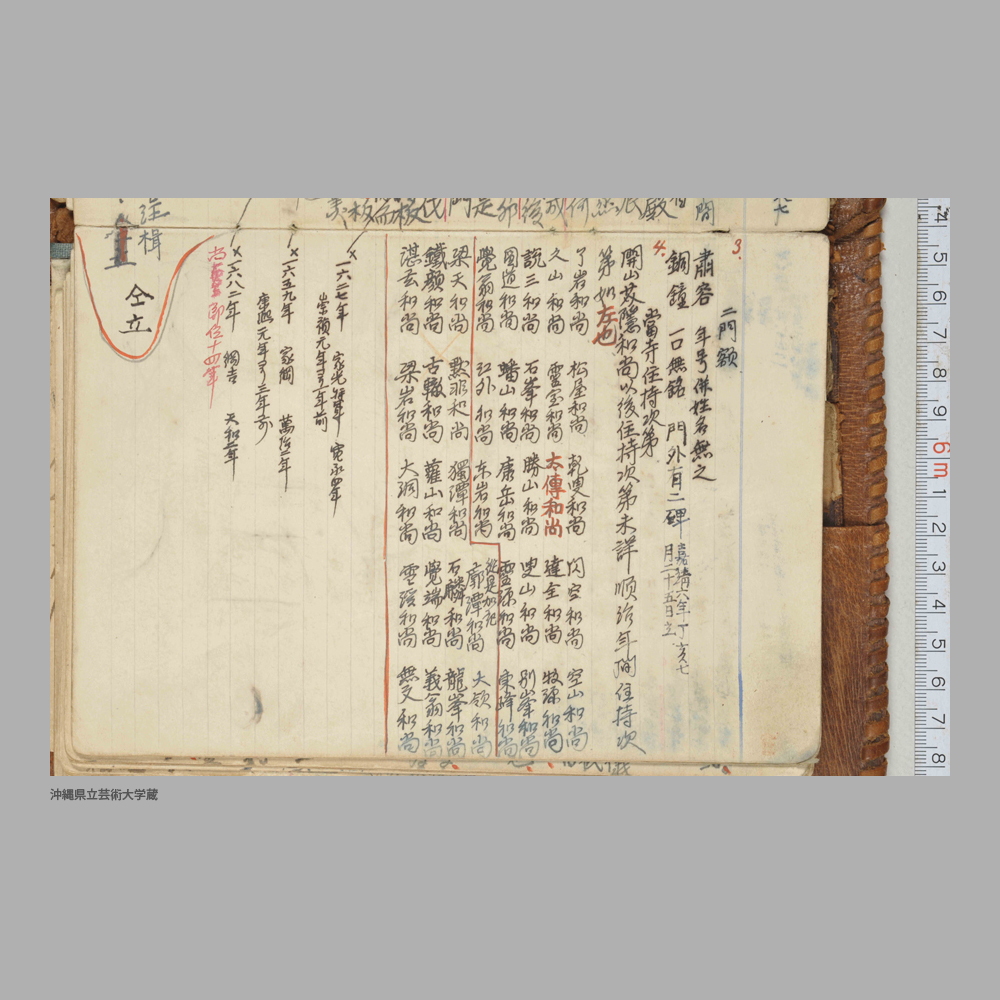 3.
二門額
肅容 年号併姓名無之
銅鐘 一口無銘 門外有二碑 嘉靖六年丁亥七月二十五日立
4.
當寺住持次第
開山芥隱和尚以後住持次第未詳順治年間住持次
第如左也
了岩和尚 松屋和尚 乾叟和尚 閃空和尚 空山和尚
久山和尚 靈室和尚 太傳和尚 達全和尚 牧源和尚
説三和尚 石峯和尚 勝山和尚 叟山和尚 別峯和尚
國道和尚 蟠山和尚 唐岳和尚 靈源和尚 東峰和尚
從是加記
覺翁和尚 江外和尚 东岩和尚 廓潭和尚 大領和尚
梁天和尚 黙非和尚 獨潭和尚 石麟和尚 龍峯和尚
鐵額和尚 古轍和尚 蘿山和尚 覺端和尚 義翁和尚
湛玄和尚 梁岩和尚 大洞和尚 雪蹊和尚 無又和尚
×一六二七年 家光将軍 寛永四年
崇禎元年ヨリ一年前
×一六五九年 家綱 萬治二年
康熙元年ヨリ三年前
×一六八二年 綱吉 天和二年
尚貞王即位十四年
仝立
沖縄県立芸術大学蔵